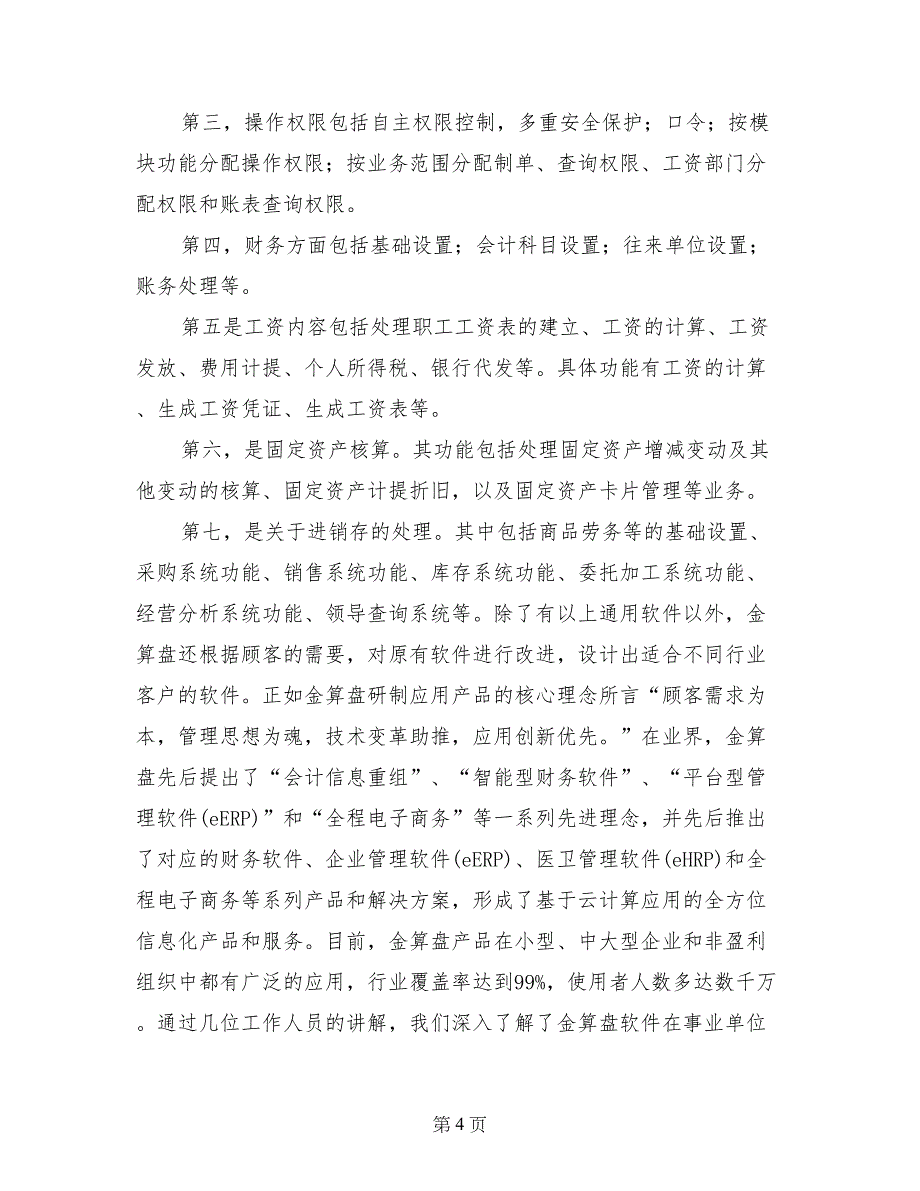 第三，操作权限包括自主权限控制，多重安全保护；口令；按模
块功能分配操作权限；按业务范围分配制单、查询权限、工资部门分
配权限和账表查询权限。
第四，财务方面包括基础设置；会计科目设置；往来单位设置；
账务处理等。
第五是工资内容包括处理职工工资表的建立、工资的计算、工资
发放、费用计提、个人所得税、银行代发等。具体功能有工资的计算
、生成工资凭证、生成工资表等。
第六，是固定资产核算。其功能包括处理固定资产增减变动及其
他变动的核算、固定资产计提折旧，以及固定资产卡片管理等业务。
第七，是关于进销存的处理。其中包括商品劳务等的基础设置、
采购系统功能、销售系统功能、库存系统功能、委托加工系统功能、
经营分析系统功能、领导查询系统等。除了有以上通用软件以外，金
算盘还根据顾客的需要，对原有软件进行改进，设计出适合不同行业
客户的软件。正如金算盘研制应用产品的核心理念所言“顾客需求为
本，管理思想为魂，技术变革助推，应用创新优先。”在业界，金算
盘先后提出了“会计信息重组”、“智能型财务软件”、“平台型管
理软件(eERP)”和“全程电子商务”等一系列先进理念，并先后推出
了对应的财务软件、企业管理软件(eERP)、医卫管理软件(eHRP)和全
程电子商务等系列产品和解决方案，形成了基于云计算应用的全方位
信息化产品和服务。目前，金算盘产品在小型、中大型企业和非盈利
组织中都有广泛的应用，行业覆盖率达到99%，使用者人数多达数千万
。通过几位工作人员的讲解，我们深入了解了金算盘软件在事业单位
第 4 页